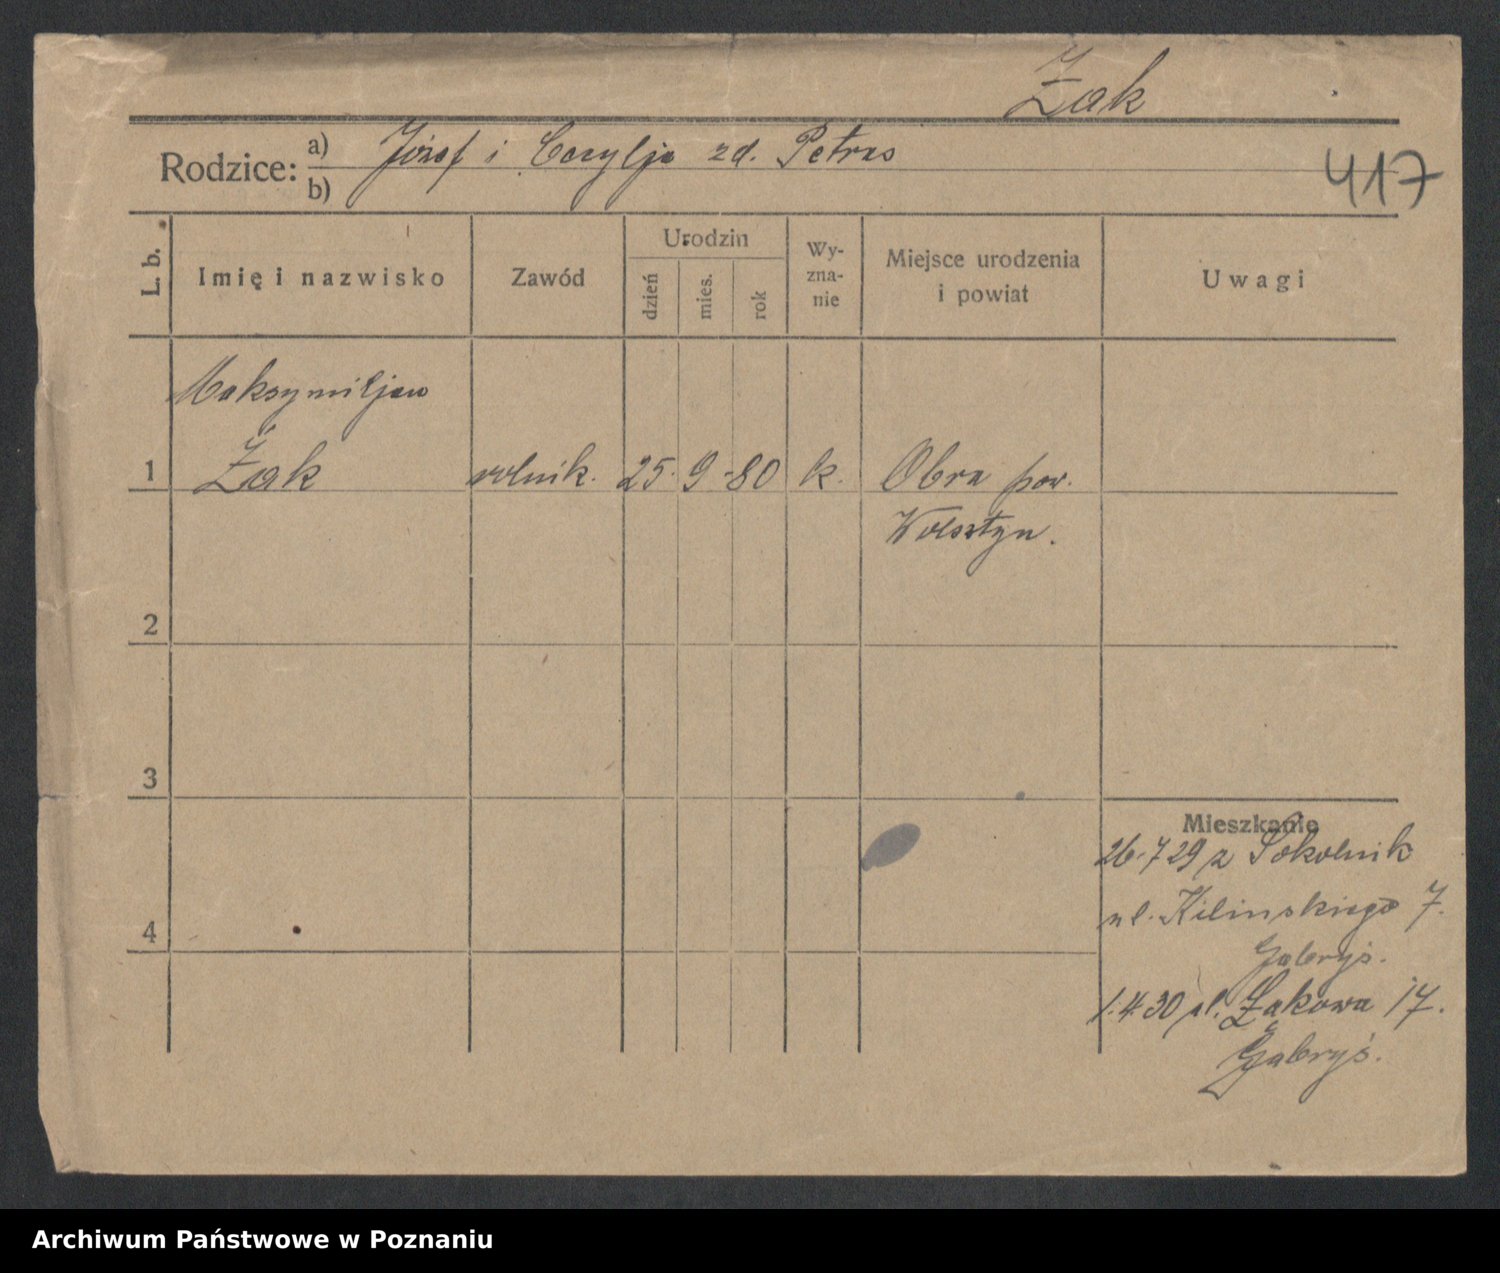 Żak
Rodzice: a) Józef i Cecylja zd. Petras
b)
417
L. b.
Imię i nazwisko
Zawód
Urodzin
dzień
mies.
rok
Wy-
zna-
nie
Miejsce urodzenia
i powiat
Uwagi
Maksymiljan
1 Żak rolnik. 25. 9 -80 k. Obra pow.
Wolsztyn.
2
3
Mieszkanie
26.7 29 z Sokolnik
ul. Kilinskiego 7.
Gabryś.
4
1.4.30 ul. Łąkowa 17.
Gabryś.
Archiwum Państwowe w Poznaniu